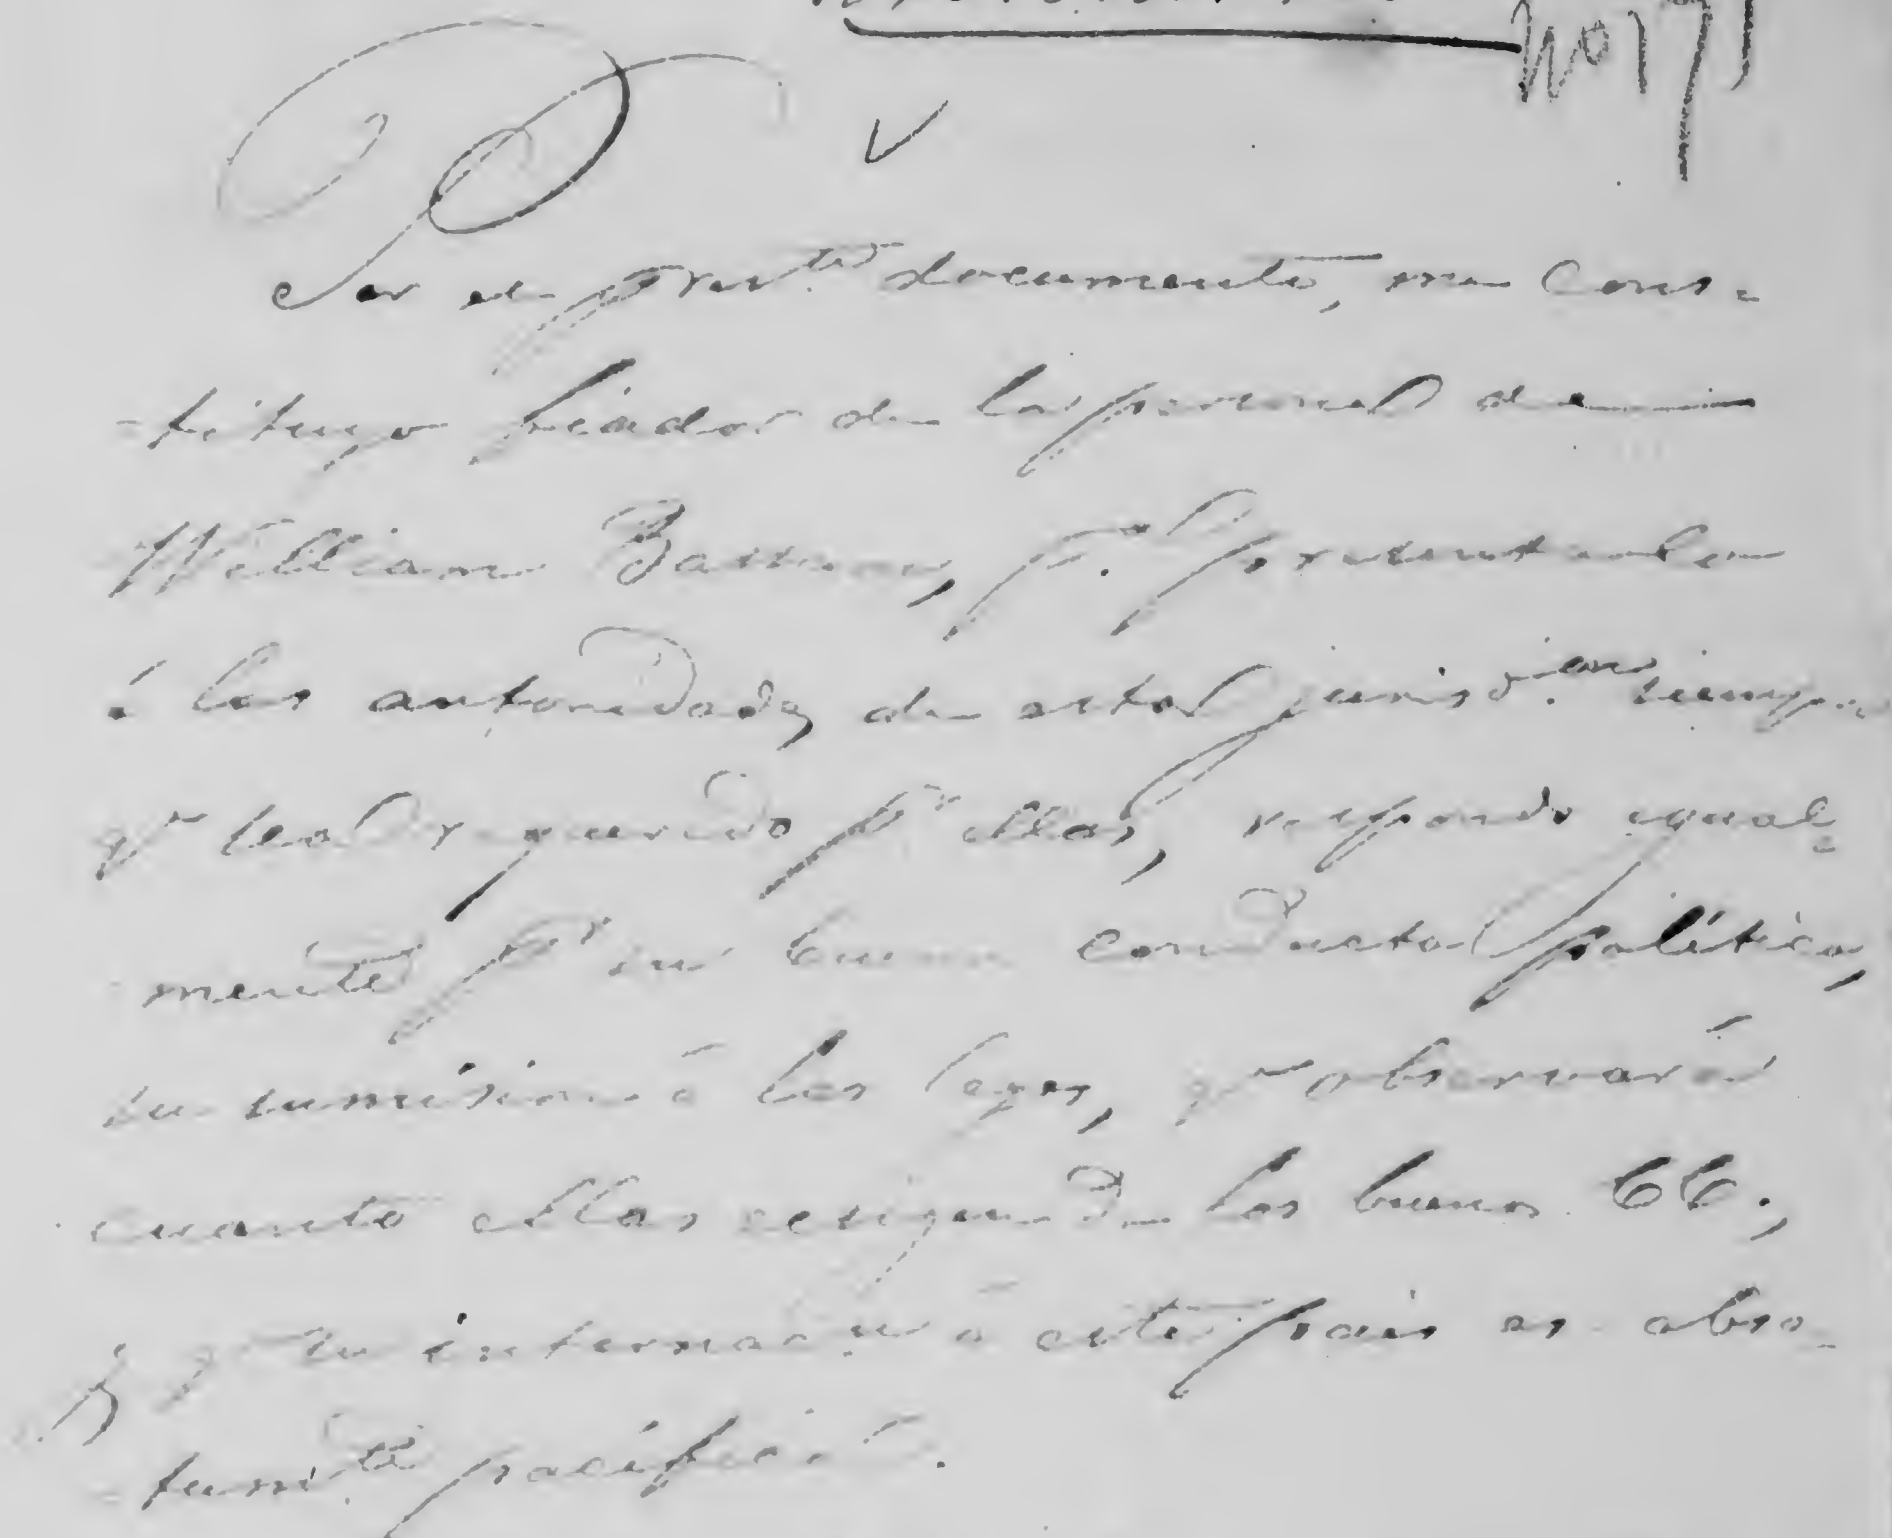 Por el pres.te documento, me cons-
-tituyo fiador de la persona de
William
p.a presentarlo
á las autoridades de esta jurisd.ion siempre
q.e sea requerido p.r ellas, respondo igual-
mente p.r su buena conducta política,
su sumisión á las leyes, q.e observará
cuanto ellas exigen de los buenos CC.,
y q.e su internac.on á este país es abso-
-tam.te pacífica.